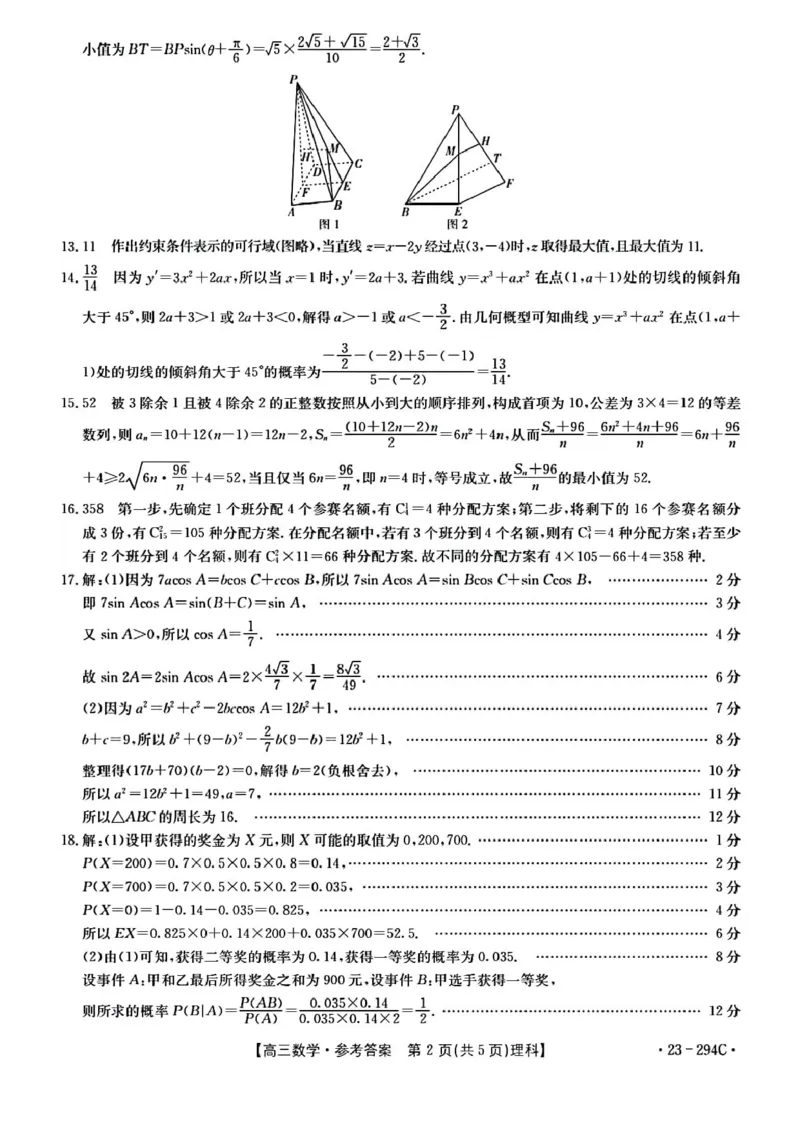 小值为 BT=BPsin(θ+π/6)=√5×(2√5+√15)/10=(2+√3)/2.
P
H M D C F E A B
图1
P M H T F B E
图2
13.11 作出约束条件表示的可行域(图略),当直线 z=x-2y 经过点(3,-4)时,z 取得最大值,且最大值为 11.
14.13/14 因为 y′=3x²+2ax,所以当 x=1 时,y′=2a+3.若曲线 y=x³+ax² 在点(1,a+1)处的切线的倾斜角
大于 45°,则 2a+3>1 或 2a+3<0,解得 a>-1 或 a<-3/2.由几何概型可知曲线 y=x³+ax² 在点(1,a+
1)处的切线的倾斜角大于 45°的概率为 (-3/2-(-2)+5-(-1))/(5-(-2))=13/14.
15.52 被 3 除余 1 且被 4 除余 2 的正整数按照从小到大的顺序排列,构成首项为 10,公差为 3×4=12 的等差
数列,则 aₙ=10+12(n-1)=12n-2,Sₙ=(10+12n-2)n/2=6n²+4n,从而(Sₙ+96)/n=(6n²+4n+96)/n=6n+96/n
+4≥2√(6n·96/n)+4=52,当且仅当 6n=96/n,即 n=4 时,等号成立,故(Sₙ+96)/n的最小值为 52.
16.358 第一步,先确定 1 个班分配 4 个参赛名额,有 C₄¹=4 种分配方案;第二步,将剩下的 16 个参赛名额分
成 3 份,有 C₁₅²=105 种分配方案.在分配名额中,若有 3 个班分到 4 个名额,则有 C₄³=4 种分配方案;若至少
有 2 个班分到 4 个名额,则有 C₄²×11=66 种分配方案.故不同的分配方案有 4×105-66+4=358 种.
17.解:(1)因为 7acos A=bcos C+ccos B,所以 7sin Acos A=sin Bcos C+sin Ccos B, …………………… 2 分
即 7sin Acos A=sin(B+C)=sin A, …………………… 3 分
又 sin A>0,所以 cos A=1/7. …………………… 4 分
故 sin 2A=2sin Acos A=2×4√3/7×1/7=8√3/49. …………………… 6 分
(2)因为 a²=b²+c²-2bccos A=12b²+1, …………………… 7 分
b+c=9,所以 b²+(9-b)²-2/7b(9-b)=12b²+1, …………………… 8 分
整理得(17b+70)(b-2)=0,解得 b=2(负根舍去), …………………… 10 分
所以 a²=12b²+1=49,a=7, …………………… 11 分
所以△ABC 的周长为 16. …………………… 12 分
18.解:(1)设甲获得的奖金为 X 元,则 X 可能的取值为 0,200,700. …………………… 1 分
P(X=200)=0.7×0.5×0.5×0.8=0.14, …………………… 2 分
P(X=700)=0.7×0.5×0.5×0.2=0.035, …………………… 3 分
P(X=0)=1-0.14-0.035=0.825, …………………… 4 分
所以 EX=0.825×0+0.14×200+0.035×700=52.5. …………………… 6 分
(2)由(1)可知,获得二等奖的概率为 0.14,获得一等奖的概率为 0.035. …………………… 8 分
设事件 A:甲和乙最后所得奖金之和为 900 元,设事件 B:甲选手获得一等奖,
则所求的概率 P(B|A)=P(AB)/P(A)=(0.035×0.14)/(0.035×0.14×2)=1/2. …………………… 12 分
【高三数学·参考答案 第 2 页(共 5 页)理科】 ·23-294C·